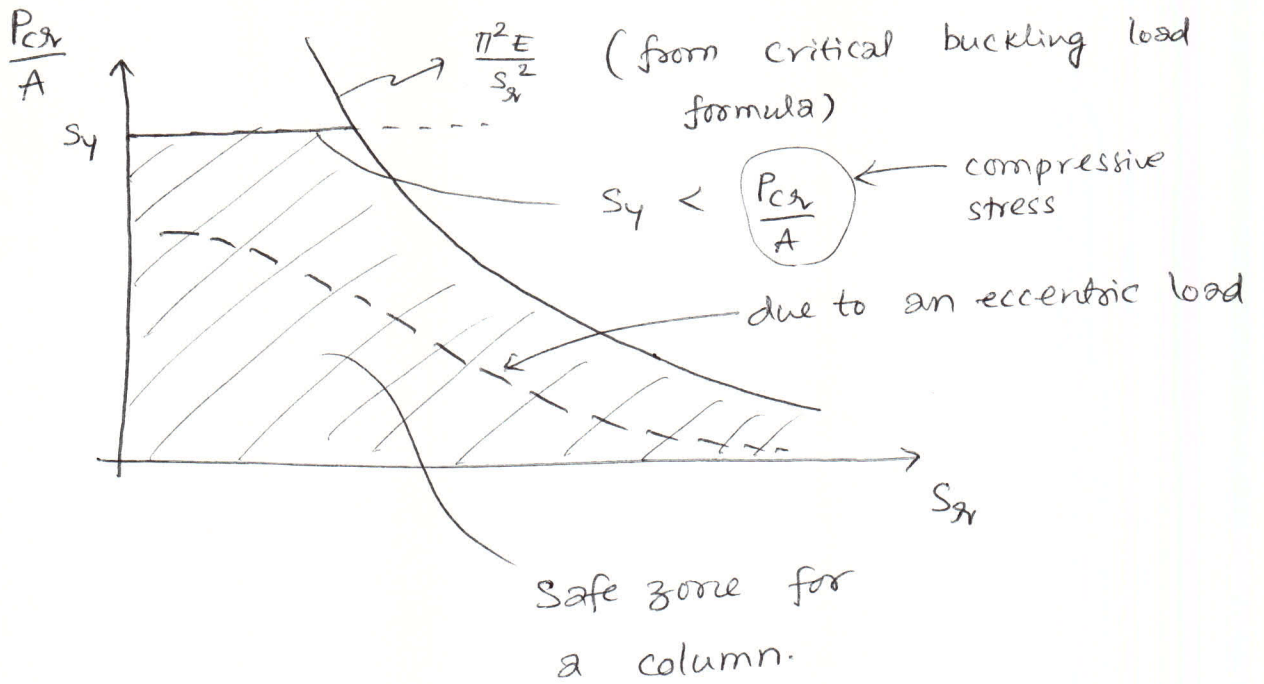 Pcr
A
π²E
Sr²
(from critical buckling load
formula)
Sy
Sy < Pcr
A
compressive
stress
due to an eccentric load
Sr
Safe zone for
a column.